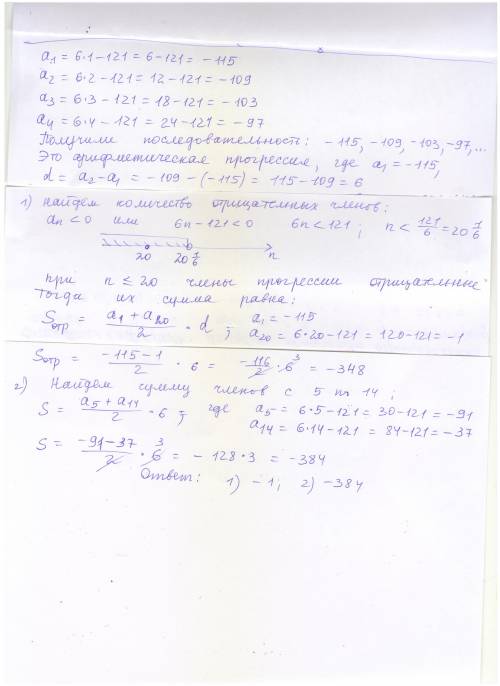 a₁ = 6·1-121 = 6-121 = -115
a₂ = 6·2-121 = 12-121 = -109
a₃ = 6·3-121 = 18-121 = -103
a₄ = 6·4-121 = 24-121 = -97
Получили последовательность: -115, -109, -103, -97,...
Это арифметическая прогрессия, где a₁ = -115,
d = a₂-a₁ = -109-(-115) = 115-109 = 6
1) найдём количество отрицательных членов:
an < 0 или 6n-121<0 6n<121; n < 121/6 = 20 1/6
20 20 1/6 n
при n ≤ 20 члены прогрессии отрицательные
Тогда их сумма равна:
Sотр = (a₁+a₂₀)/2 · d; a₁ = -115
a₂₀ = 6·20-121 = 120-121 = -1
Sотр = (-115-1)/2 · 6 = -116/2 · 6 3 = -348
2) Найдём сумму членов с 5 по 14;
S = (a₅+a₁₄)/2 · 6; где a₅ = 6·5-121 = 30-121 = -91
a₁₄ = 6·14-121 = 84-121 = -37
S = (-91-37)/2 · 6 3 = -128·3 = -384
Ответ: 1) -1; 2) -384